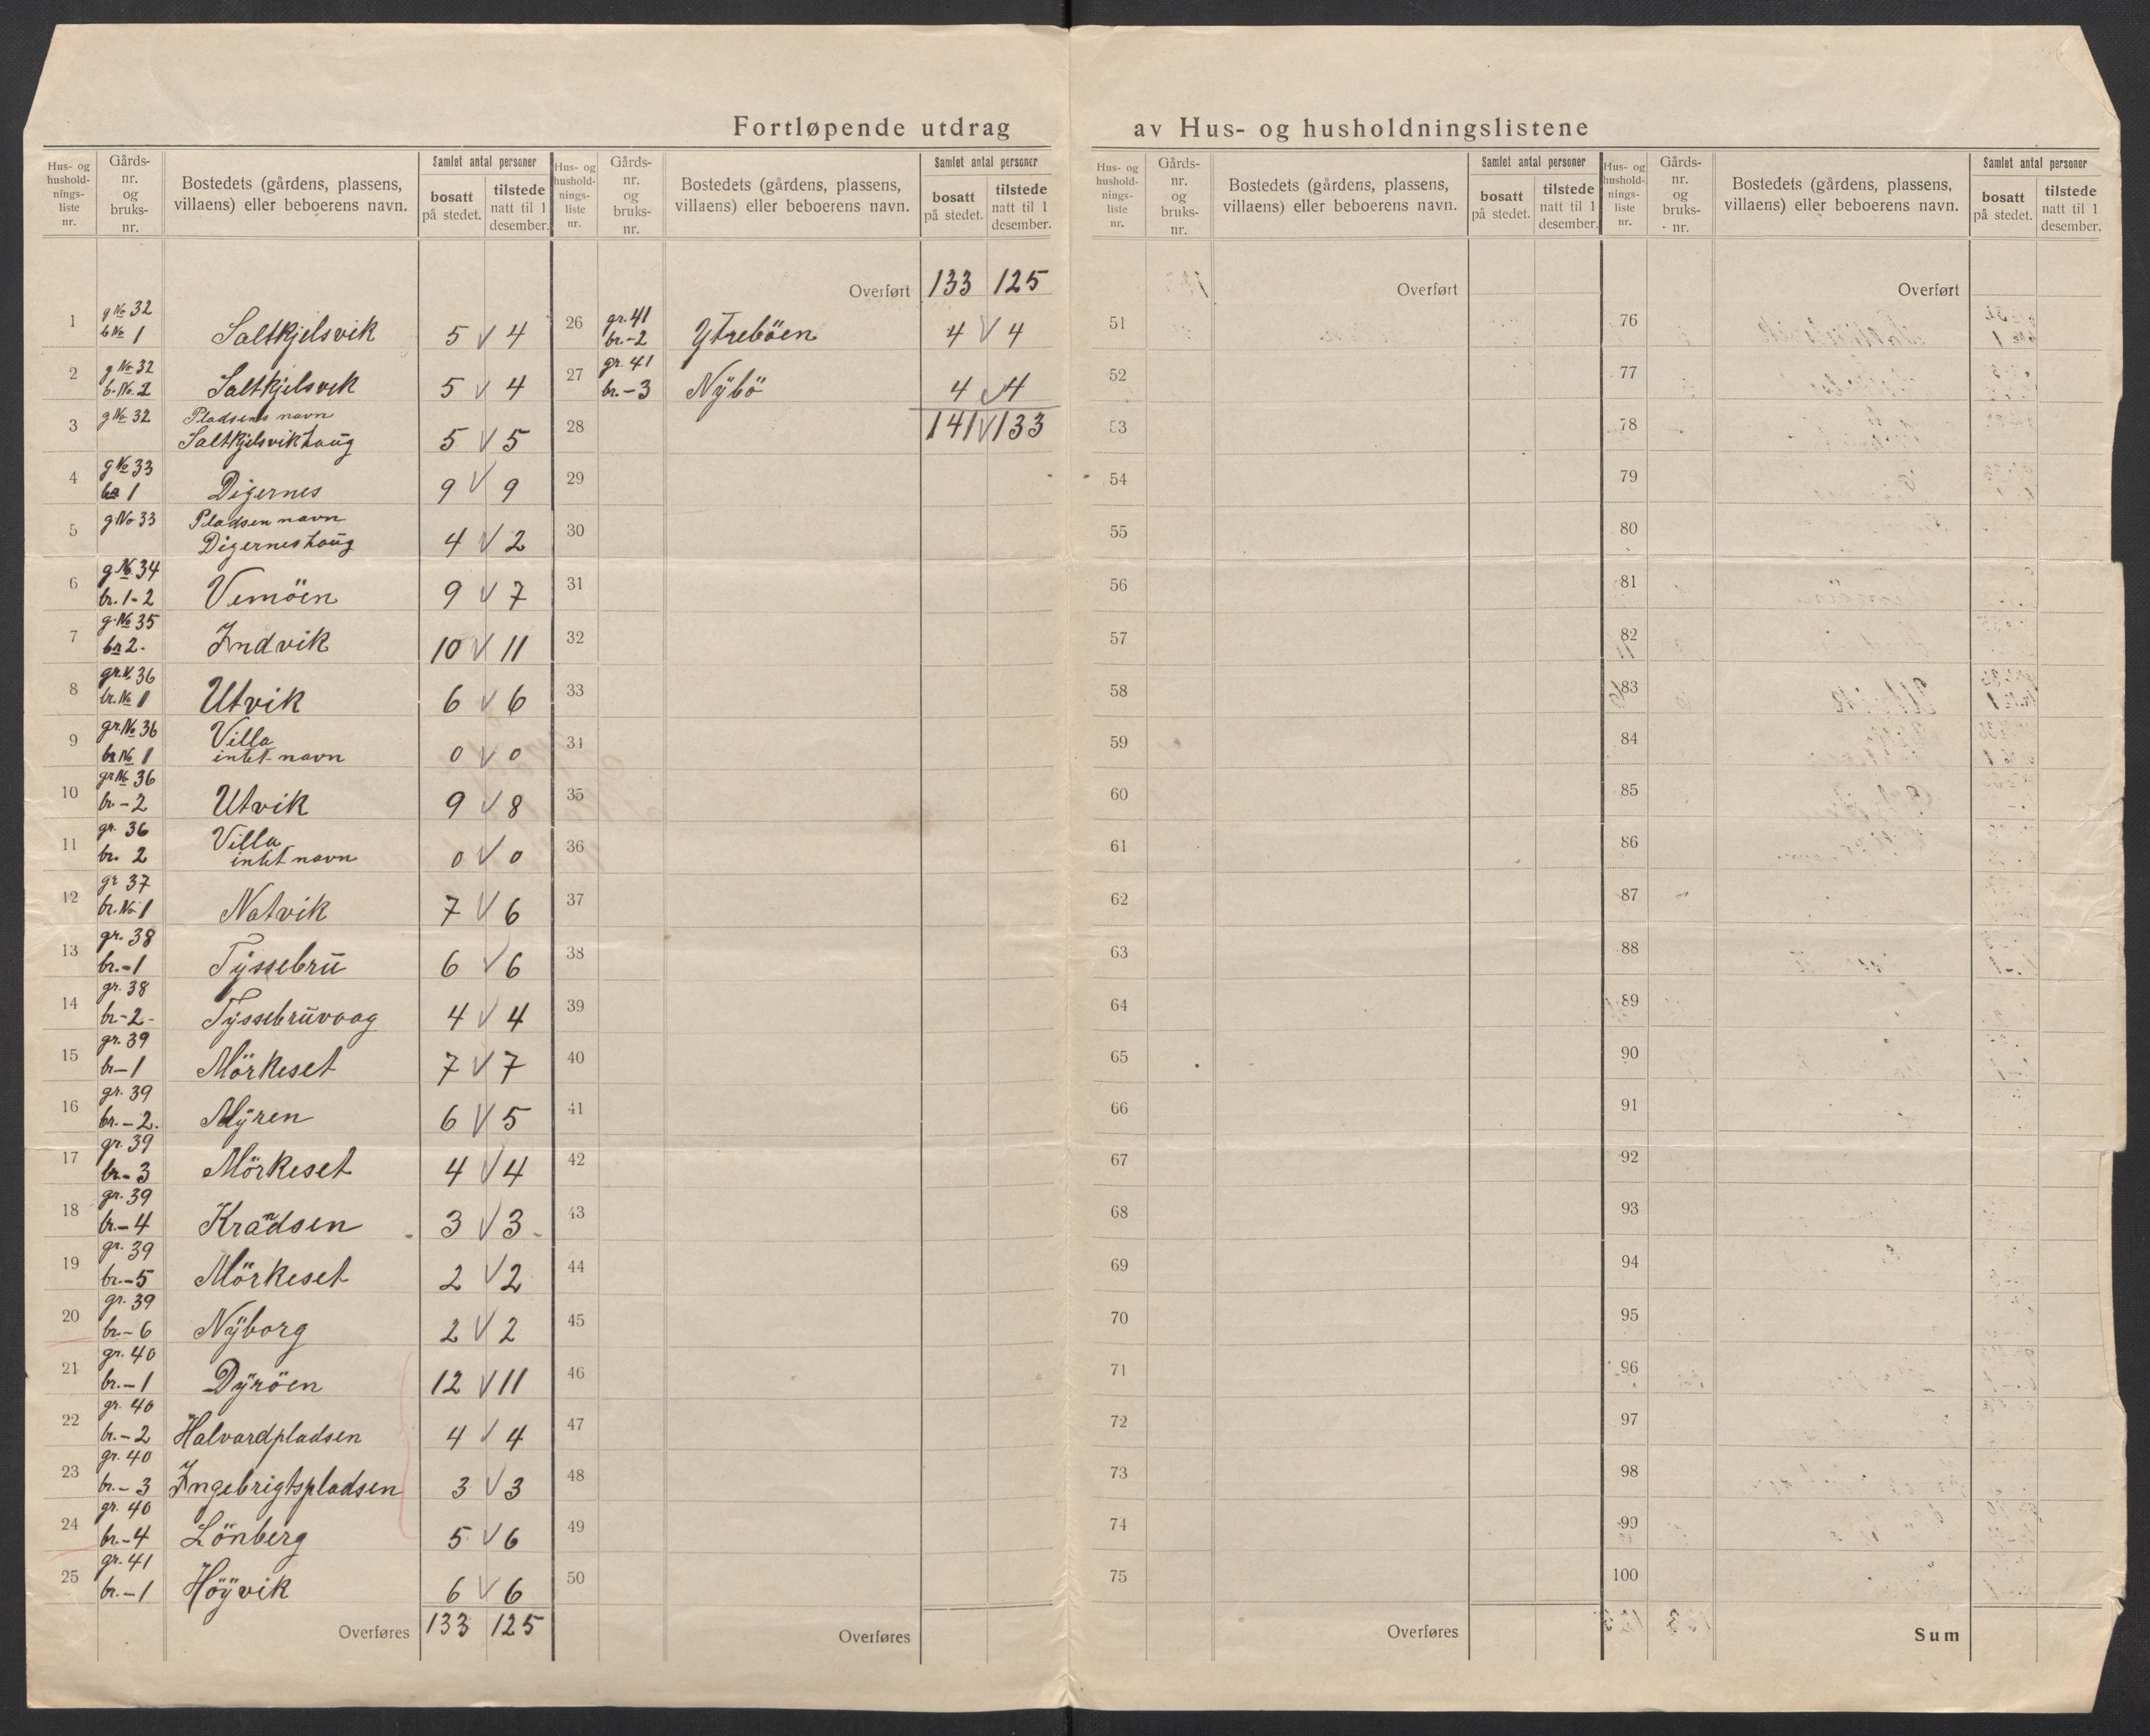 Fortløpende utdrag av Hus- og husholdningslistene
Hus- og hushold- nings- liste nr.
Gårds- nr. og bruks- nr.
Bostedets (gårdens, plassens, villaens) eller beboerens navn.
Samlet antal personer
bosatt på stedet.
tilstede natt til 1 desember.
1 g No 32 b No 1 Saltkjelsvik 5 V 4
2 g No 32 b. No. 2 Saltkjelsvik 5 V 4
3 g No 32 Pladsens navn
Saltkjelsvikhaug 5 V 5
4 g No 33 1 Digernes 9 V 9
5 g No 33 Pladsen navn
Digerneshaug 4 V 2
6 g No. 34 br. 1-2 Vemöen 9 V 7
7 g. No 35 2. Indvik 10 V 11
8 gr. N. 36 br. No 1 Utvik 6 V 6
9 gr. No 36 br No 1 Villa
intet navn 0 V 0
10 gr No 36 br - 2 Utvik 9 V 8
11 gr. 36 br. 2 Villa
intet navn 0 V 0
12 gr 37 br. No 1 Natvik 7 V 6
13 gr. 38 br. - 1 Tyssebru 6 V 6
14 gr. 38 br - 2 - Tyssebruvaag 4 V 4
15 gr. 39 br - 1 Mörkeset 7 V 7
16 gr. 39 br. - 2. Myren 6 V 5
17 gr. 39 br. - 3 Mörkeset 4 V 4
18 gr. 39 br. - 4 3 V 3
19 gr. 39 br. - 5 Mörkeset 2 V 2
20 gr. 39 br. - 6 Nyborg 2 V 2
21 gr. 40 br. - 1 Dyröen 12 V 11
22 gr. 40 br. - 2 Halvardpladsen 4 V 4
23 gr. 40 br. - 3 Ingebrigtspladsen 3 V 3
24 gr. 40 br. - 4 Lönberg 5 V 6
25 gr. 41 br. - 1 Höyvik 6 V 6
Overføres 133 125
Hus- og hushold- nings- liste nr.
Gårds- nr. og bruks- nr.
Bostedets (gårdens, plassens, villaens) eller beboerens navn.
Samlet antal personer
bosatt på stedet.
tilstede natt til 1 desember.
Overført 133 125
26 gr. 41 br. - 2 Ytreböen 4 V 4
27 gr. 41 br. - 3 Nybö 4 V 4
28 141 V 133
29
30
31
32
33
34
35
36
37
38
39
40
41
42
43
44
45
46
47
48
49
50
Overføres
Hus- og hushold- nings- liste nr.
Gårds- nr. og bruks- nr.
Bostedets (gårdens, plassens, villaens) eller beboerens navn.
Samlet antal personer
bosatt på stedet.
tilstede natt til 1 desember.
Overført
51
52
53
54
55
56
57
58
59
60
61
62
63
64
65
66
67
68
69
70
71
72
73
74
75
Overføres
Hus- og hushold- nings- liste nr.
Gårds- nr. og bruks- nr.
Bostedets (gårdens, plassens, villaens) eller beboerens navn.
Samlet antal personer
bosatt på stedet.
tilstede natt til 1 desember.
Overført
76
77
78
79
80
81
82
83
84
85
86
87
88
89
90
91
92
93
94
95
96
97
98
99
100
Sum